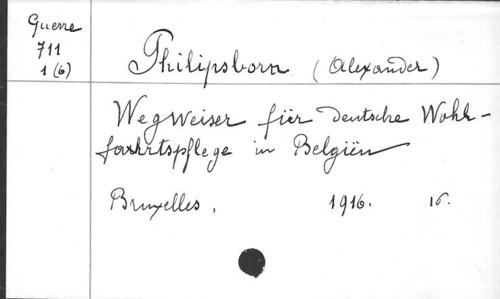 Guerre
711
1 (6)
Philipsborn (Alexander)
Wegweiser für Deutsche Wohl-
fahrtspflege in Belgiën
Bruxelles, 1916. 16°.